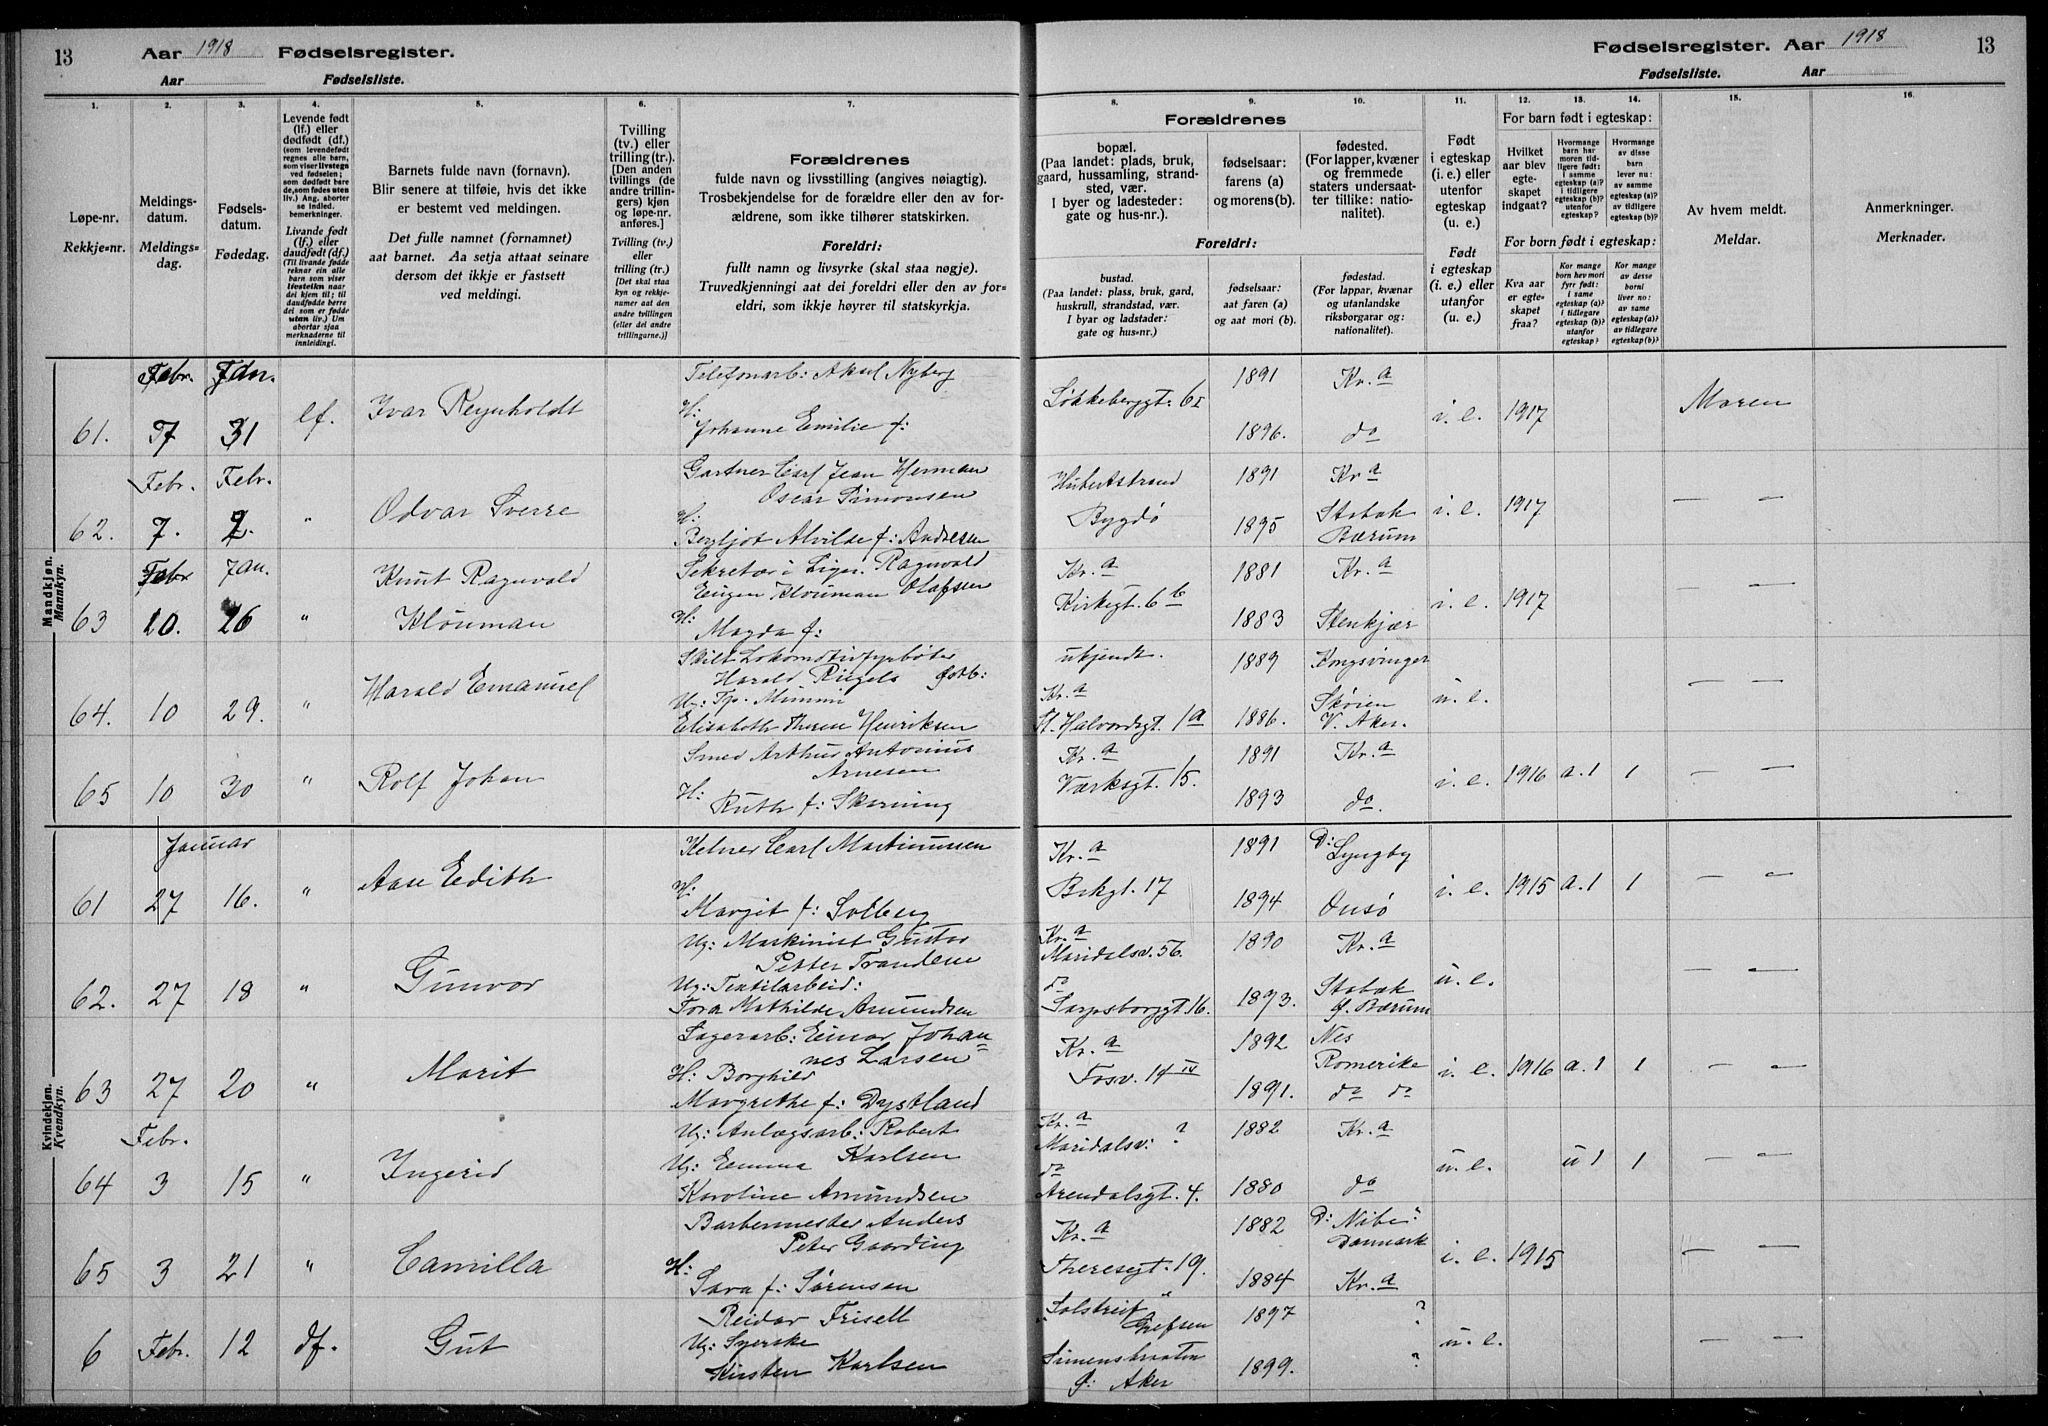 13 Aar 1918 Fødselsregister.
Aar Fødselsliste.
Fødselsregister. Aar 1918 13
Fødselsliste. Aar
1. 2. 3. 4. 5. 6. 7. 8. 9. 10. 11. 12. 13. 14. 15. 16.
Løpe-nr.
Rekkje-nr.
Meldings-
datum.
Meldings-
dag.
Fødsels-
datum.
Fødedag.
Levende født
(lf.) eller
dødfødt (df.)
(som levendefødt
regnes alle barn,
som viser livstegn
ved fødselen;
som dødfødt bare
de, som fødes uten
liv.) Ang. aborter
se indled.
bemerkninger.
Livande født
(lf.) eller
daudfødt (df.)
(Til livande fødde
reknar ein alle
barn som viser
livsteikn naar
dei kjem til; til
daudfødde berre
dei som er fødde
utan liv.) Um
abortar sjaa
merknaderne til
innleidingi.
Barnets fulde navn (fornavn).
Blir senere at tilføie, hvis det ikke
er bestemt ved meldingen.
Det fulle namnet (fornamnet)
aat barnet. Aa setja attaat seinare
dersom det ikkje er fastsett
ved meldingi.
Tvilling
(tv.) eller
trilling (tr.)
[Den anden
tvillings (de
andre trillin-
gers) kjøn
og løpe-nr.
anføres.]
Tvilling (tv.)
eller
trilling (tr.)
[Det skal staa
kyn og rekkje-
numer aat den
andre tvillingen
(eller dei andre
trillingarne.)]
Forældrenes
fulde navn og livsstilling (angives nøiagtig).
Trosbekjendelse for de forældre eller den av for-
ældrene, som ikke tilhører statskirken.
Foreldri:
fullt namn og livsyrke (skal staa nøgje).
Truvedkjenningi aat dei foreldri eller den av for-
eldri, som ikkje høyrer til statskyrkja.
Forældrenes
bopæl.
(Paa landet: plads, bruk,
gaard, hussamling, strand-
sted, vær.
I byer og ladesteder:
gate og hus-nr.).
fødselsaar:
farens (a)
og morens (b).
fødested.
(For lapper, kvæner
og fremmede
staters undersaat-
ter tillike: natio-
nalitet).
Foreldri:
bustad.
(Paa landet: plass, bruk, gard,
huskrull, strandstad, vær.
I byar og ladstader:
gate og hus-nr.)
fødselsaar:
aat faren (a)
og aat mori (b).
fødestad.
(For lappar, kvænar
og utanlandske
riksborgarar og:
nationalitet).
Født
i egteskap
(i. e.) eller
utenfor
egteskap
(u. e.)
Født
i egteskap
(i. e.) eller
utanfor
(u. e.)
For barn født i egteskap:
Hvilket
aar blev
egte-
skapet
indgaat?
Hvormange
barn har
moren tid-
ligere født:
i samme
egteskap (a)?
i tidligere
egteskap (b)?
utenfor
egteskap?
Hvormange
av disse
barn
lever nu:
av samme
egteskap (a)?
av tidligere
egteskap (b)?
For born født i egteskap:
Kva aar
er egte-
skapet
fraa?
Kor mange
born hev mori
fyrr født:
i same
egteskap (a)?
i tidlegare
egteskap (b)?
utanfor
egteskap?
Kor mange
av desse
borni
liver no:
av same
egteskap (a)?
av tidlegare
egteskap (b)?
Av hvem meldt.
Meldar.
Anmerkninger.
Merknader.
Mandkjøn.
Mannkyn.
Febr. Jan. Telefonarb: Aksel Nyberg 1891 Kr.a
61. 7 31 lf. Ivar Reynholdt H: Johanne Emilie f: Løkkeberggt. 6I 1896. do i. e. 1917 Moren
Febr. Febr. Gartner Carl Jean Herman Oscar Simonsen Hubertstrand 1891 Kr.a
62. 7. 2. " Odvar Sverre H: Bergljot Alvilde f: Andresen Bygdø 1895 Stabæk Bærum i. e. 1917 — —
Febr Jan. Sekretær i Ragnvald Eugen Klouman Olafsen Kr.a 1881 Kr.a
63 10. 26 " Knut Ragnvald Klouman H: Magda f: Kirkegt. 6b 1883 Stenkjær i. e. 1917 — —
Skilt Lokomotivfyrbøter Harald Riegels ukjendt. 1889 Kongsvinger
64. 10 29. " Harald Emanuel Ug: Mimmi Elisabeth Henriksen Kr.a St. Halvordsgt. 1a 1886. Skøien V. Aker. u. e. — —
Smed Arthur Antonius Arnesen Kr.a 1891 Kr.a
65 10 30 " Rolf Johan H: Ruth f: Skarning Værksgt. 15. 1893 do. i. e. 1916 a. 1 1 — —
Kvindekjøn.
Kvendkyn.
Januar Kelner Carl Martinussen Kr.a 1891 D: Lyngby
61 27 16. " Aase Edith H: Margit f: Solberg 17 1894 Onsø i. e. 1915 a. 1 1 — —
Ug: Maskinist Gustav Petter Trandem Kr.a Maridalsv. 56. 1890 Kr.a
62. 27 18 " Gunvor Ug: Textilarbeid: Tora Mathilde Amundsen do Sarpsborggt. 16. 1893. Stabæk Bærum u. e. — —
Lagerarb: Einar Johannes Larsen Kr.a 1892 Nes Romerike
63 27 20 " Marit H: Borghild Margrethe f: Dystland Fosv. 14 IV 1891. do do i. e. 1916 a. 1 1 — —
Febr. Ug: Anlægsarb: Robert Karlsen Kr.a Maridalsv: ? 1882 Kr.a
64 3 15 " Ingerid Ug: Emma Karoline Amundsen do Arendalsgt. 4. 1880 do u. e. u 1 1 — —
Barbermester Anders Peter Gaarding Kr.a 1882 D: Nibe: Danmark
65 3 21 " Camilla H: Sara f: Sørensen Theresgt. 19. 1884 Kr.a i. e. 1915 — —
Reidar Frisell Solstreif Grefsen 1897 ?
6 Febr. 12 df. Gut Ug: Syerske Kirsten Karlsen Simensbraaten Ø: Aker 1899. ? u. e. — —